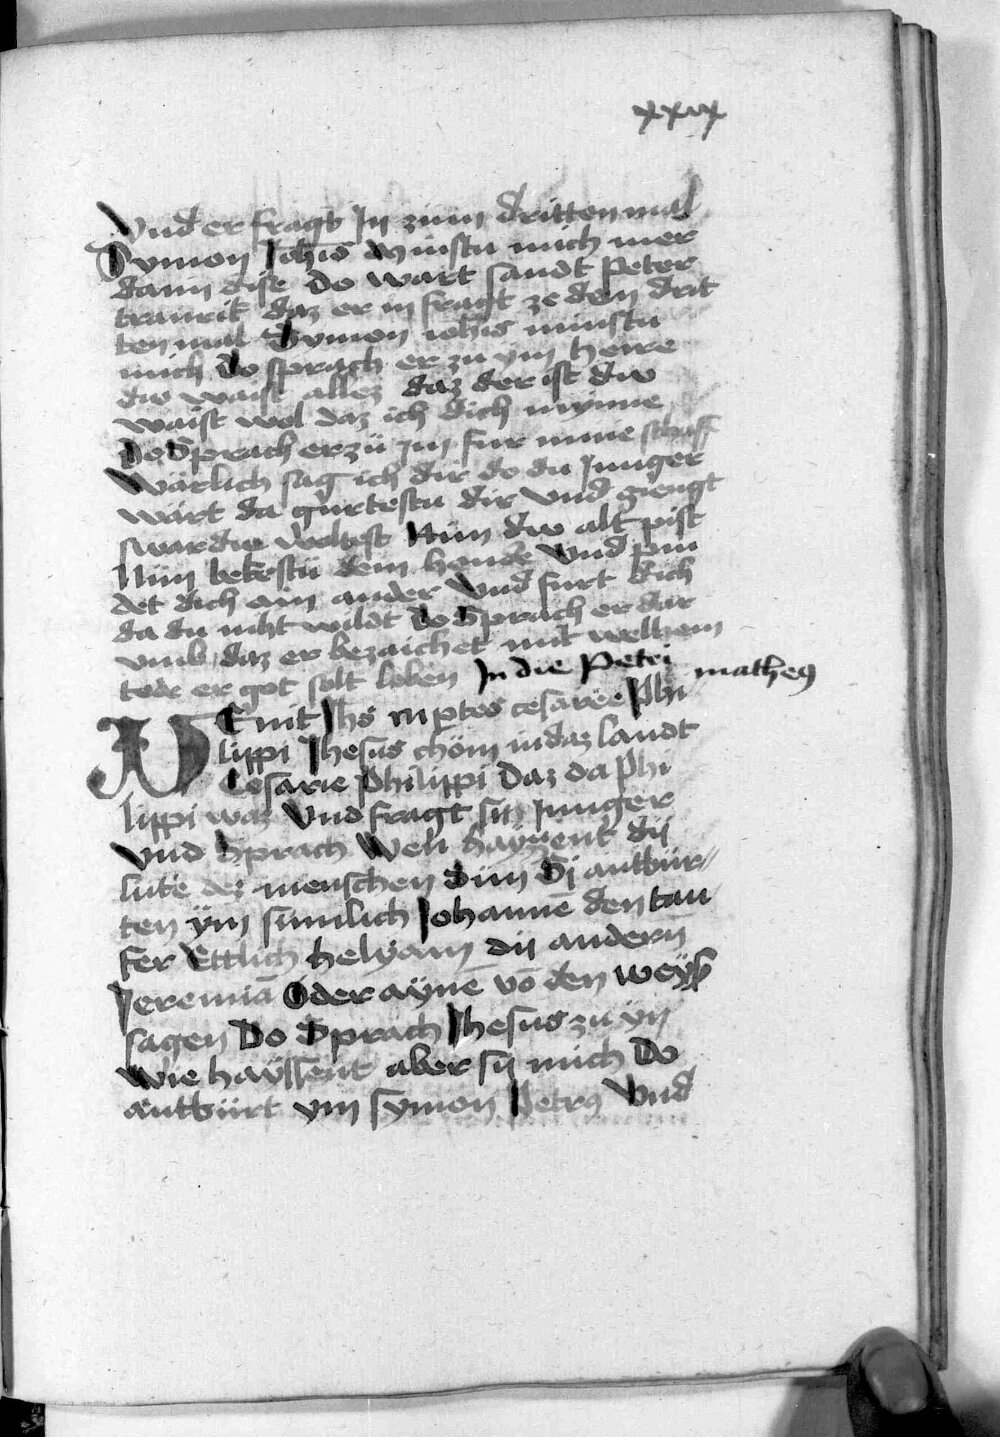 xxix
Vnd er fragt In zum dritten mal
Symon Joh̄is Minstu mich mer
dann dise Do wart sandt Peter
traurik daz er in fragt ze dem drit
ten mal Symon ioh̄is minstu
mich Do sprach er zu ym herre
dw waist allez daz der ist dw
waist wol daz ich dich mynne
Do Sprach er zü ym fur mine schaff
Wärlich sag ich dir do du Junger
wärt da gürtestu dir Vnd giengt
swar dw woltest Nün dw alt pist
Nün bekestu dein hende Vnd pin
det dich ain ander Vnd furt dich
da du niht wildt Do Sprach er dar
vmb daz er bezaichet mit welhem
tode er got solt loben In die Petri matheus
VEnit Jhs̄ in ptes cesaree Phi
lippi Jhesus chöm in daz landt
Cesarie philippi Daz da Phi
lippi waz Vnd fragt sin Junger
Vnd Sprach Weli hayzzent dij
lüte dez menschen Sün Sj antbür=
ten ÿm sümlich Johannē den tau
fer Ettlich helyam dij andern
Jeremiā Oder aynē vō den weÿs
sagen Do Sprach Jhesus zu yn
Wie hayssent aber sij mich Do
antbürt ym symon Petrus Vnd